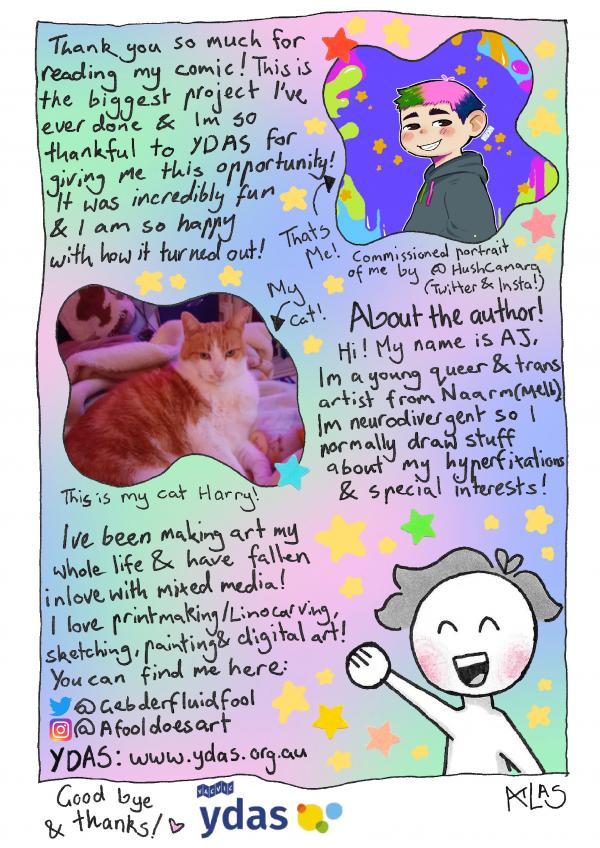 Thank you so much for
reading my comic! This is
the biggest project I've
ever done & Im so
thankful to YDAS for
giving me this opportunity!
It was incredibly fun
& I am so happy
with how it turned out!
Thats
Me!
Commissioned portrait
of me by @HushCamara
(Twitter & Insta!)
My
Cat!
About the author!
Hi! My name is AJ,
Im a young queer & trans
artist from Naarm(Melb)
Im neurodivergent so I
normally draw stuff
about my hyperfixations
& special interests!
This is my cat Harry!
Ive been making art my
whole life & have fallen
in love with mixed media!
I love printmaking/Linocarving,
sketching, painting & digital art!
You can find me here:
@Gebderfluidfool
@Afooldoesart
YDAS: www.ydas.org.au
Good bye
& thanks!
YACVIC
ydas
ATLAS